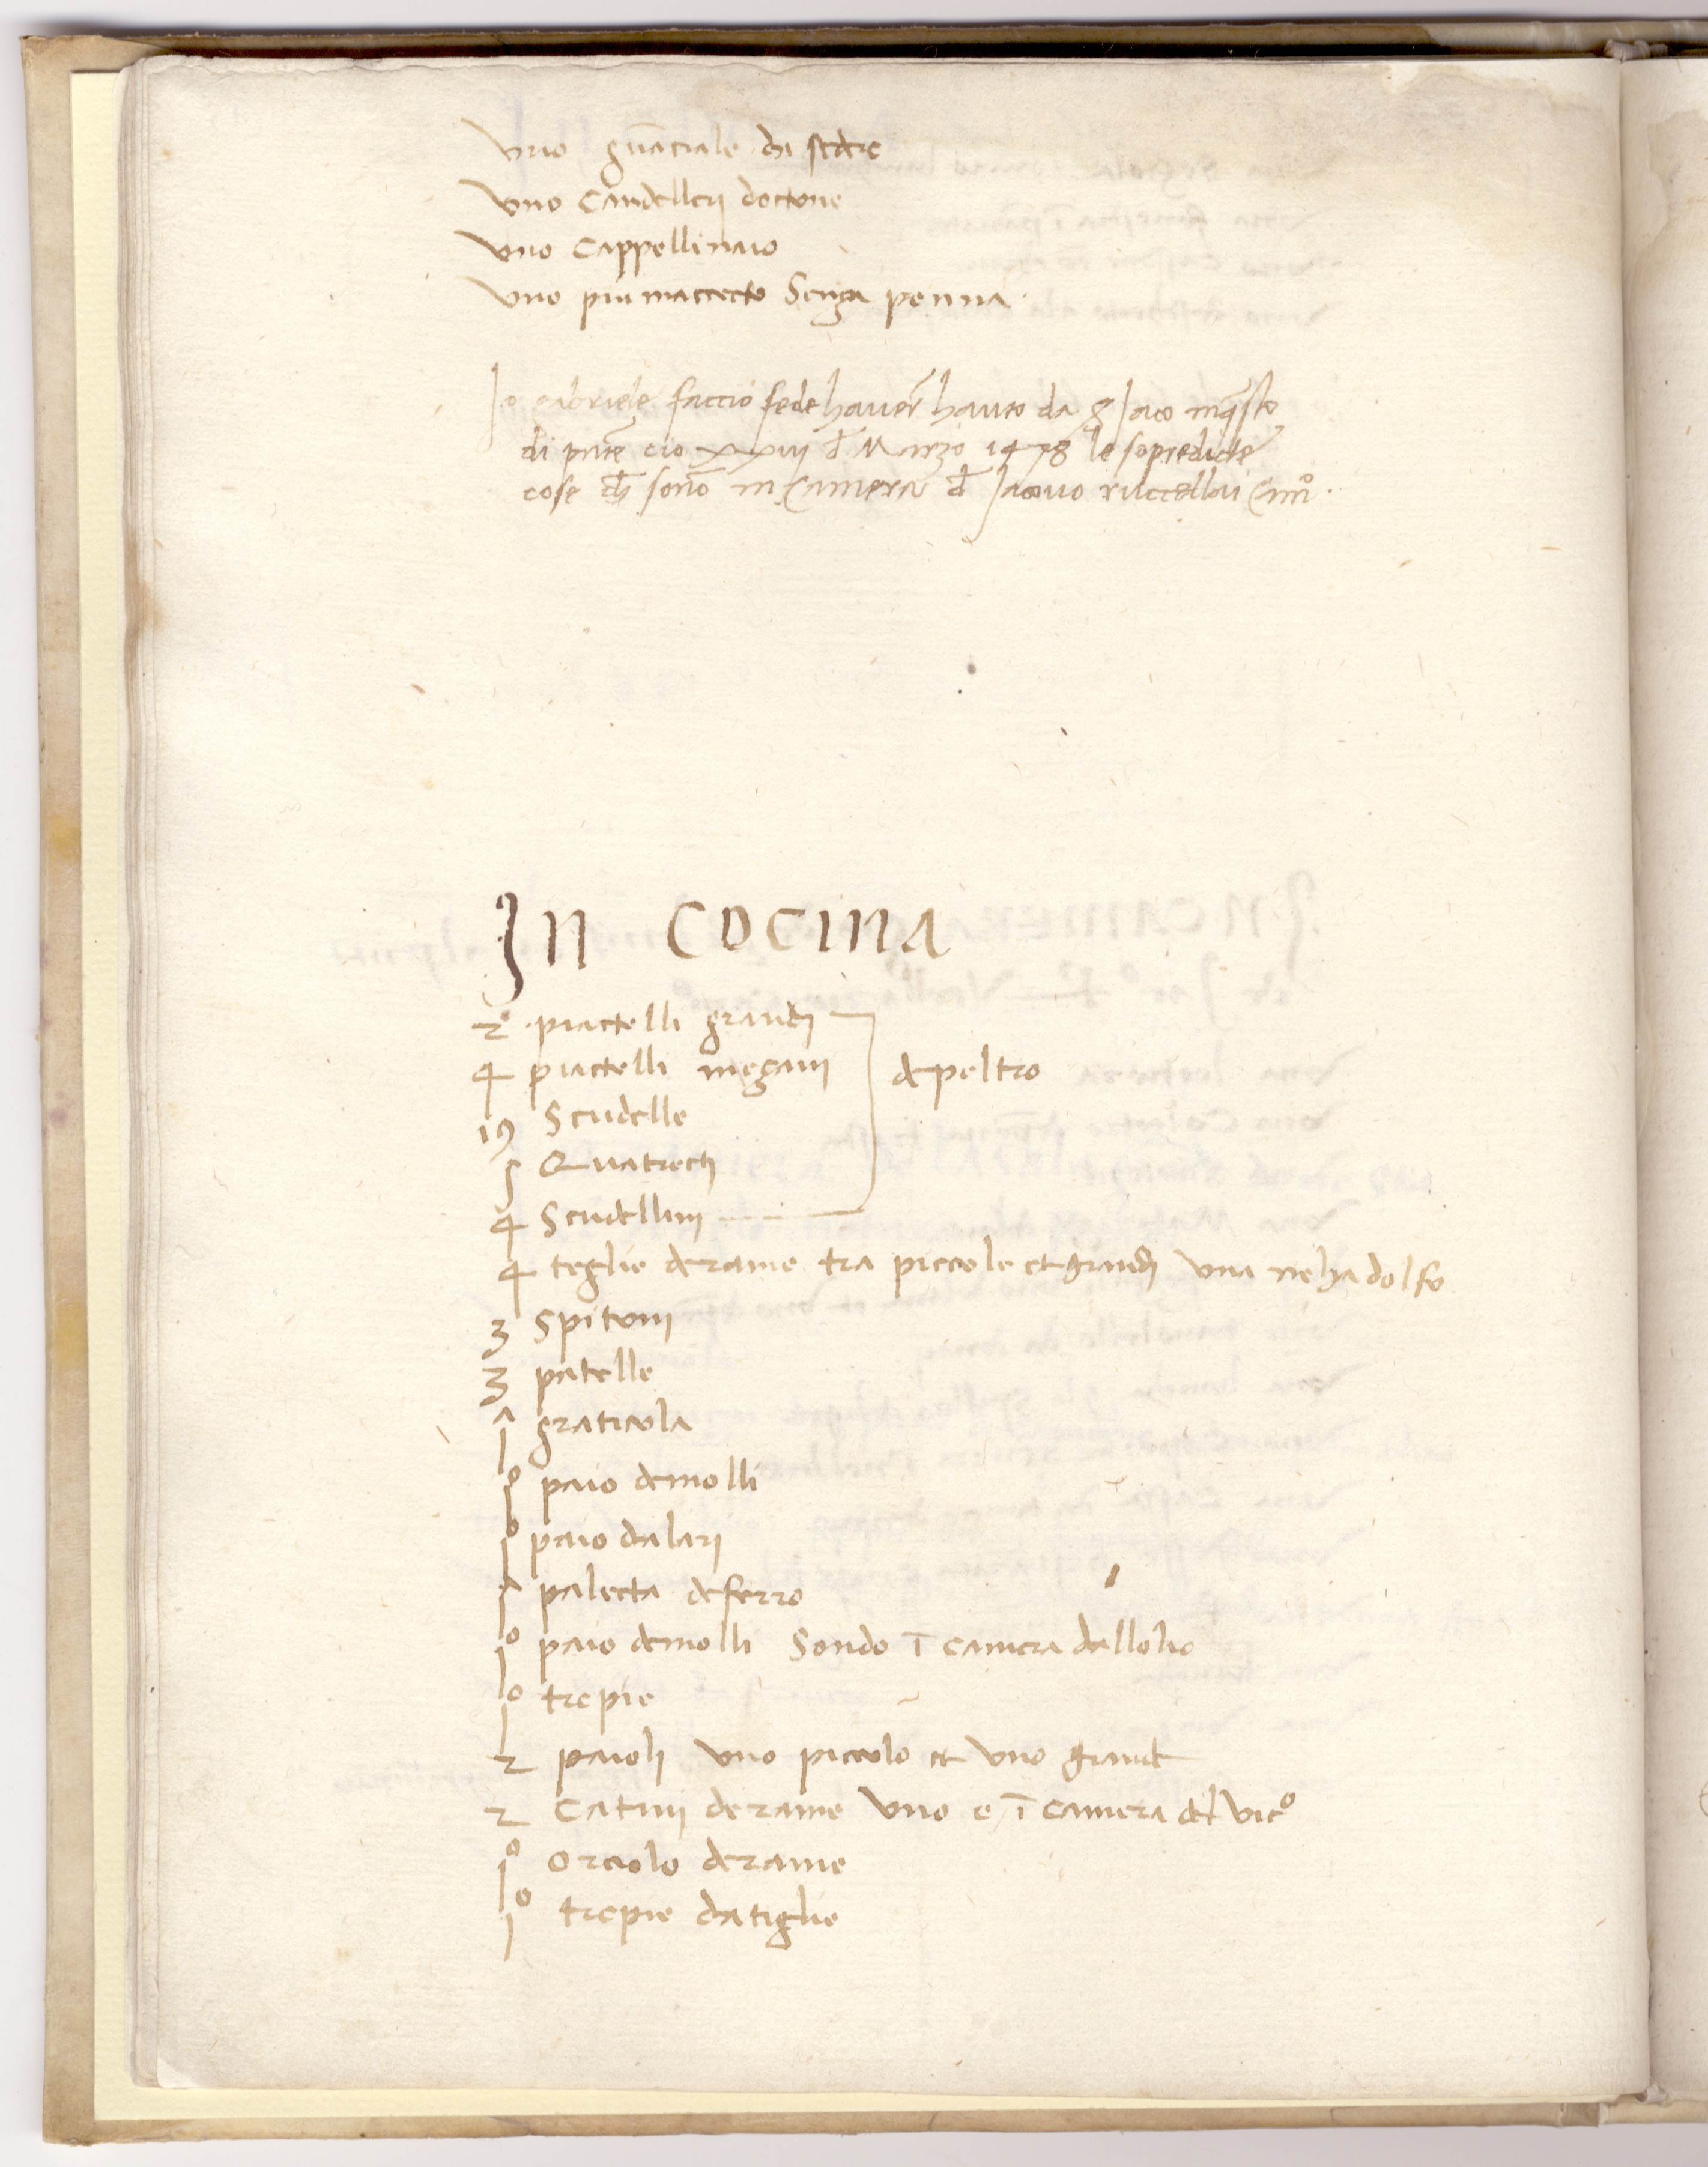 Uno gūaciale di sedere
Uno Candelleri doctone
Uno Cappellinaio
Uno piumaccecto Senza penna
Io gabriele faccio fede haver̄ havuto da Iaco
di pñte cio xxiiii d̄ Marzo 1478 le sopredicte
cose ch̄ sono in Camera d̄ Iacovo ruccellai
In cocina
2 piactelli grandi
4 piactelli mezani de peltro
19 Scudelle
5 Quatrecti
4 Scudellini
4 teglie derame tra piccole et grandi una neha dolfo
3 Spitoni
3 patelle
1ᵃ graticola
1º paio demolli
1º paio dalari
1ᵃ palecta deferro
1º paio demolli Sondo ī camera dallolio
1º trepie
2 paioli uno piccolo et uno grande
2 Catini derame Uno e ī camera del vicº
1º orciolo derame
1º trepie datiglie